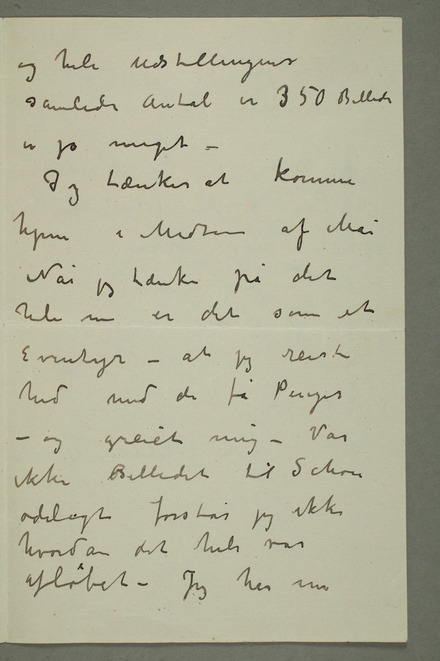 og hele Udstillingens
samlede Antal er 350 Billeder
er jo meget –
Jeg tænker at komme
hjem i Midten af Mai
Når jeg tænker på det
hele nu er det som et
Eventyr – at jeg reiste
hid med de få Penger
– og greiet mig – Var
ikke Billedet til Schou
ødelagt forstår jeg ikke
hvordan det hele var
afløbet – Jeg har nu